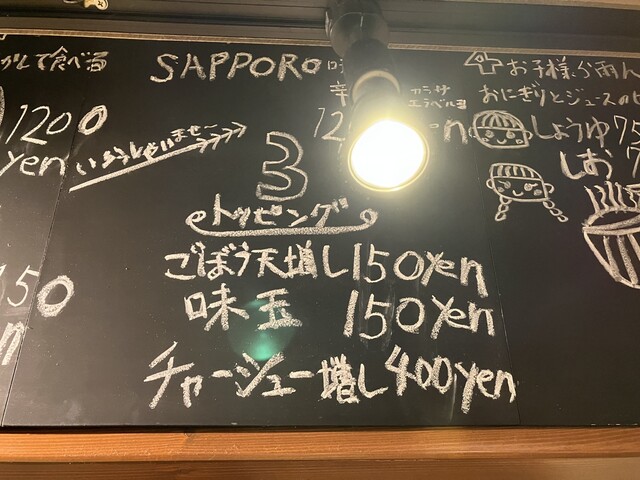 かして食べる
1200
yen
150
いらっしゃいませ〜
SAPPORO
カラサ
エラベル
3
トッピング
ごぼう天増し150yen
味玉 150yen
チャーシュー増し400yen
お子様らーめん
おにぎりとジュースの
しょうゆ75
しお 7